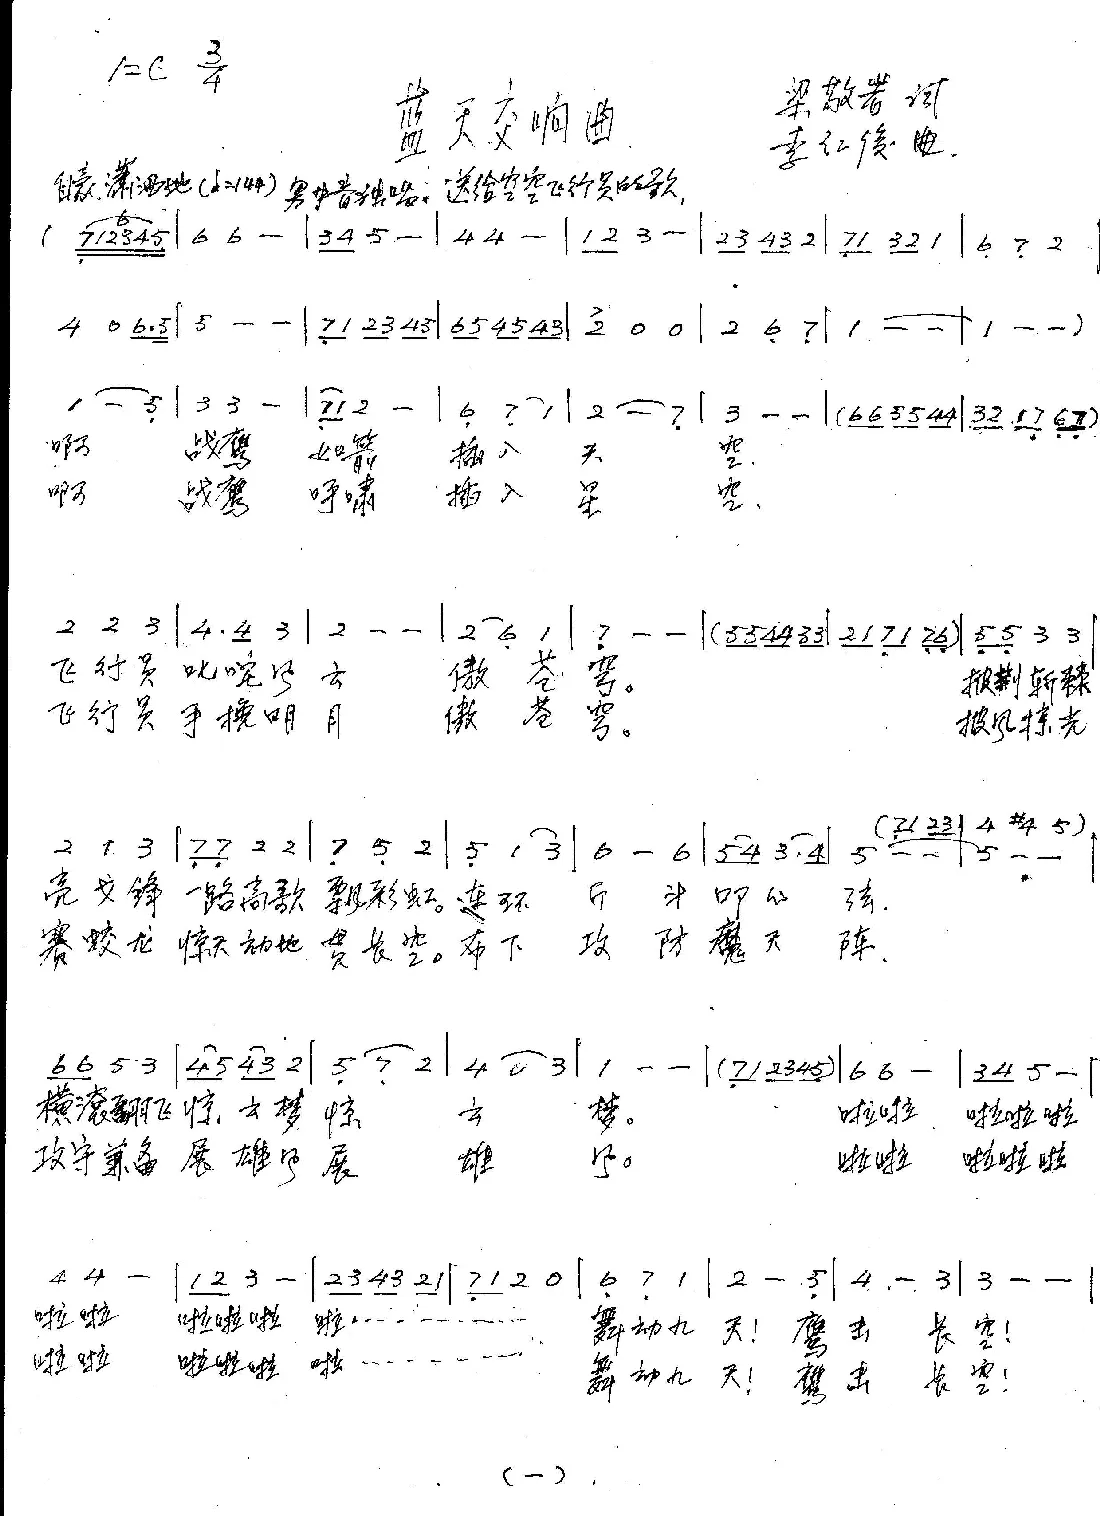 1=C 3/4
蓝天交响曲
梁敬岩 词
李仁俊 曲.
自豪 潇洒地 (♩=144) 男中音独唱: 送给空空飞行员的歌,
6
( 712345 | 6 6 — | 34 5 — | 4 4 — | 12 3 — | 23 43 2 | 71 32 1 | 6 7 2 |
4 0 6.5 | 5 — — | 71 23 45 | 65 45 43 | 2 0 0 | 2 6 7 | 1 — — | 1 — — )
1 — 5 | 3 3 — | 71 2 — | 6 7 1 | 2 — 7 | 3 — — | (66 55 44 | 32 17 67)
啊 战鹰 如箭 插入 天 空.
啊 战鹰 呼啸 插入 星 空.
2 2 3 | 4.4 3 | 2 — — | 2 6 1 | 7 — — | (55 44 33 | 21 71 76) | 55 3 3 |
飞行员 叱咤风云 傲苍穹。 披荆斩棘
飞行员 手揽明月 傲苍穹。 披风惊光
(71 23 | 4 #4 5 )
2 1 3 | 77 2 2 | 7 5 2 | 5 1 3 | 6 — 6 | 54 3.4 | 5 — — | 5 — — |
亮戈锋 一路高歌 飘彩虹。 连环斤斗叩心弦.
赛蛟龙 惊天动地 贯长空。 布下攻防魔天阵.
66 5 3 | 45 43 2 | 5 7 2 | 4 0 3 | 1 — — | (71 23 45) | 6 6 — | 34 5 — |
横滚翻飞 惊云梦 惊云梦。 啦啦 啦啦啦
攻守兼备 展雄风 展雄风。 啦啦 啦啦啦
4 4 — | 12 3 — | 23 43 21 | 71 2 0 | 6 7 1 | 2 — 5 | 4 — 3 | 3 — — |
啦啦 啦啦啦 啦………… 舞动九天! 鹰击长空!
啦啦 啦啦啦 啦………… 舞动九天! 鹰击长空!
(一)